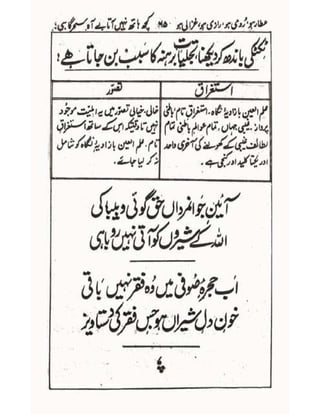 عطار ہو، رومی ہو، رازی ہو، غزالی ہو ۶۱۵ کچھ ہاتھ نہیں آتا بے آہ سحر گاہی!
ٹکٹکی باندھ کر دیکھنا، تجلیات برہنہ کا سبب بن جاتا ہے!
استغراق
علم العین بازاویۂ نگاہ۔ استغراق تام باطنی
پرواز۔ غیبی جہاں، تمام عوالم باطنی تمام
لطائف غیبی کے کھولنے کی آخری واحد
اور یکتا کلید اور کنجی ہے۔
تصور
خالی، خیالی تصور میں یہ اہلیت موجود
نہیں تا وقتیکہ اس کے ساتھ استغراق
تام۔ علم العین بازاویۂ نگاہ کو شامل
نہ کر لیا جائے۔
آئین جوانمرداں حق گوئی و بیباکی
اللہ کے شیروں کو آتی نہیں روباہی
اب حجرۂ صوفی میں وہ فقر نہیں باقی
خون دل شیراں ہو جس فقر کی دستاویز